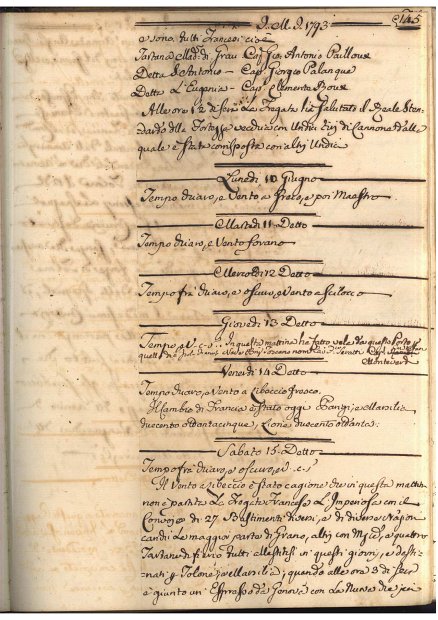 I. M. I. 1793 145
e sono tutti Francesi cioè
Tartana Mad. di Grau Cap. Gio: Antonio Pailloux
Detta S. Antonio - Cap. Giorgio Palanque
Detta L'Eugenia - Cap. Clemente Roux
Alle ore 1/2 di sera La Fregata ha Salutato il Reale Sten-
dardo della Fortezza vecchia con Undici tiri di Cannone dalle
quale è stata corrisposta con altri Undici
Lunedì 10 Giugno
Tempo chiaro, e Vento a Greco, e poi Maestro
Martedì 11 Detto
Tempo chiaro, e Vento forano
Mercoldì 12 Detto
Tempo frà chiaro, e oscuro, e Vento a Scilocco
Giovedì 13 Detto
Tempo, e V. c. s. In questa mattina ha fatto vela da questo Porto
Montevert
Venerdì 14 Detto
Tempo chiaro, e Vento a Libeccio fresco
Il Cambio di Francia è stato oggi Parigi, e Marsilia
duecento ottantacinque, Lione duecento ottanta:
Sabato 15 Detto
Tempo frà chiaro, e oscuro, e V. c. s.
Il Vento a Libeccio è stato cagione che in questa mattina
non è partita La Fregata Francese L'Imperiosa con il
Convojo di 27 Bastimenti diversi, e di diverse Nazioni
carichi La maggior parte di Grano, altri con e quattro
Tartane di fieno tutti allestitisi in questi giorni, e desti-
nati p Tolone, e Marsilia; quando alle ore 3 di sera
è giunto un Espresso da Genova con La Nuova che jeri